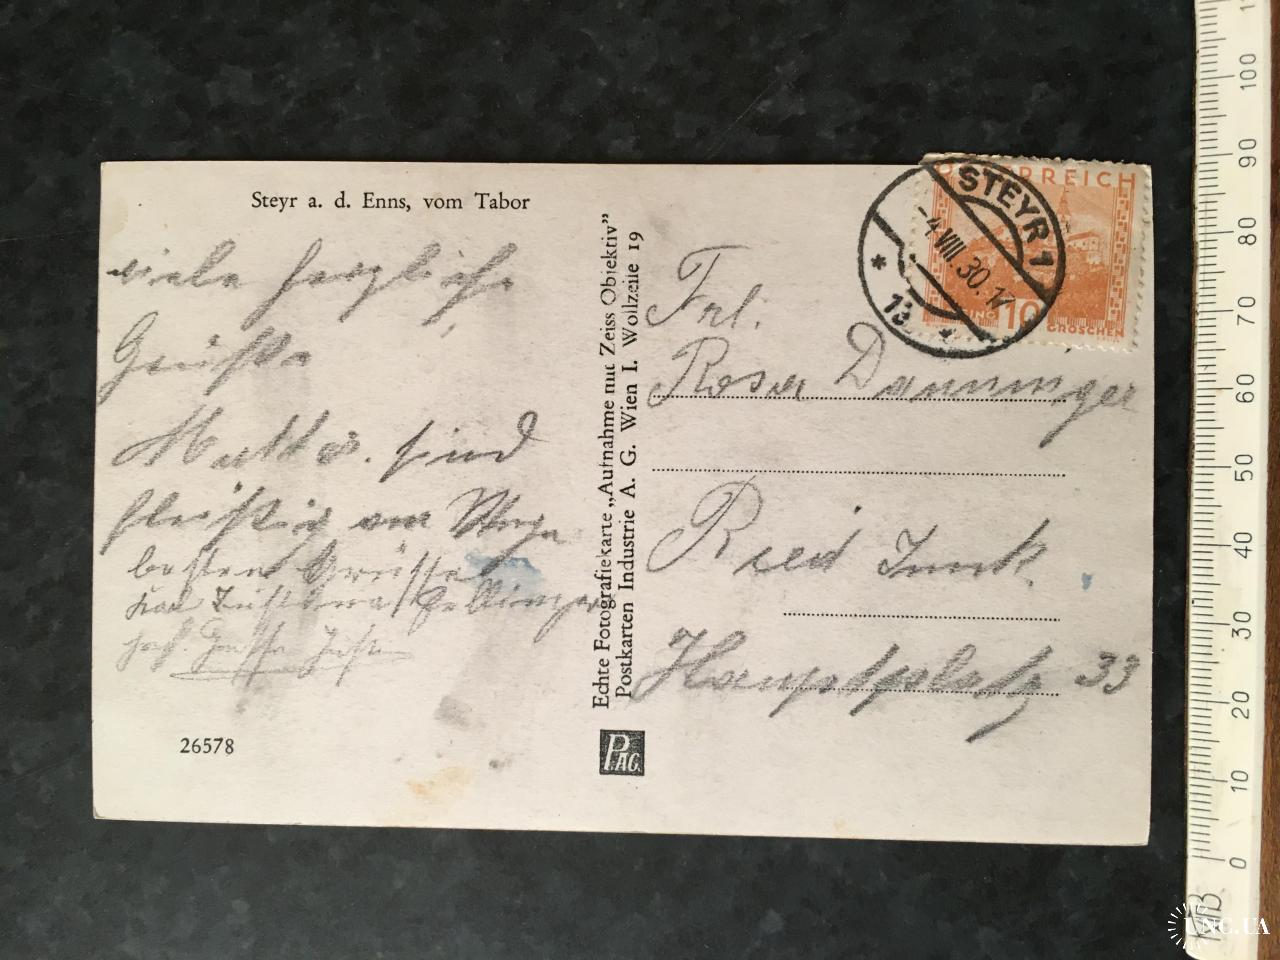 Steyr a. d. Enns, vom Tabor
viele herzliche
Grüße
sind
fleißig am Wege
besten Grüsse
26578
Echte Fotografiekarte „Aufnahme mit Zeiss Objektiv”
Postkarten Industrie A. G. Wien I. Wollzeile 19
PAG
ÖSTERREICH
10
GROSCHEN
STEYR 1
-4.VIII.30.17
Frl.
Rosa Danninger
Ried Innk.
Hauptplatz 33
110
100
90
80
70
60
50
40
30
20
10
0
UNC.UA